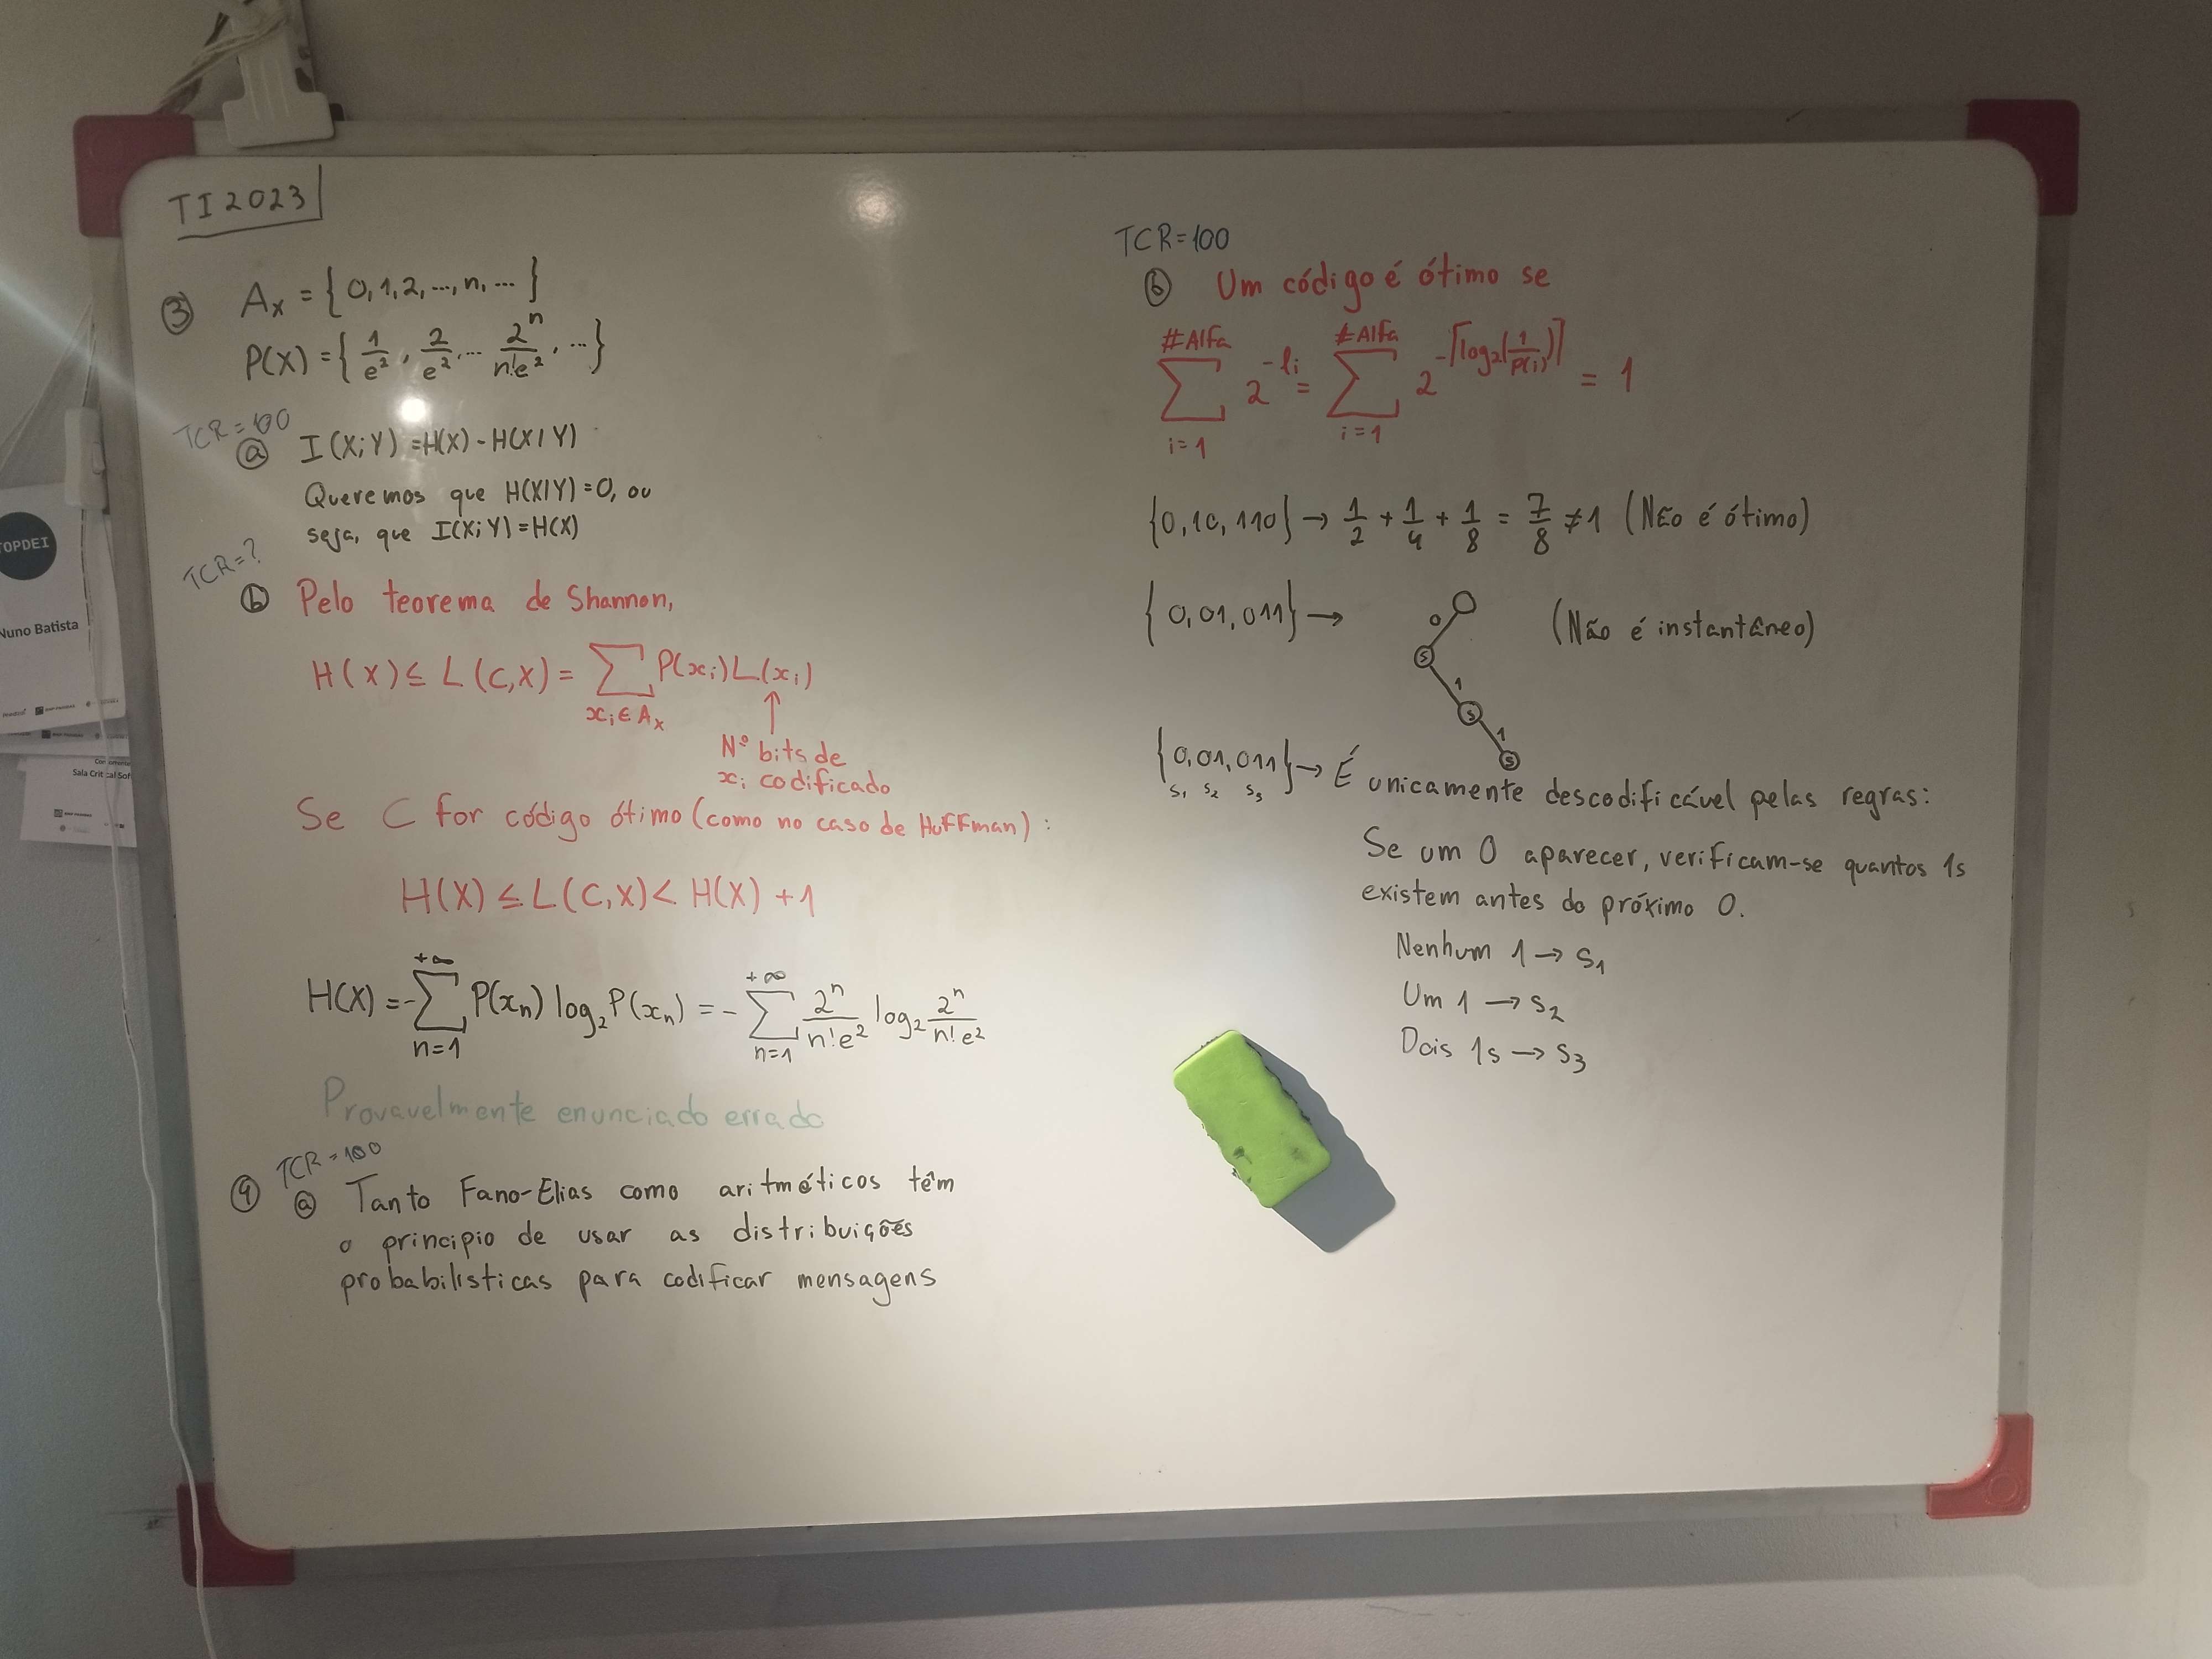 TI 2023
③ Aₓ = { 0, 1, 2, ..., n, ... }
P(X) = { 1/e², 2/e², ... 2ⁿ/n!e², ... }
TCR = 100
ⓐ I(X;Y) = H(X) - H(X|Y)
Queremos que H(X|Y)=0, ou
seja, que I(X;Y)=H(X)
TCR=?
ⓑ Pelo teorema de Shannon,
H(X) ≤ L(C,X) = ∑ P(xᵢ)L(xᵢ)
xᵢ ∈ Aₓ
↑
Nº bits de
xᵢ codificado
Se C for código ótimo (como no caso de Huffman):
H(X) ≤ L(C,X) < H(X) + 1
H(X) = -∑_{n=1}^{+∞} P(xₙ) log₂ P(xₙ) = -∑_{n=1}^{+∞} 2ⁿ/n!e² log₂ 2ⁿ/n!e²
Provavelmente enunciado errado
TCR = 100
④ ⓐ Tanto Fano-Elias como aritméticos têm
o principio de usar as distribuições
probabilisticas para codificar mensagens
TCR=100
ⓑ Um código é ótimo se
∑_{i=1}^{#Alfa} 2^{-lᵢ} = ∑_{i=1}^{#Alfa} 2^{-⌈log₂(1/P(i))⌉} = 1
{0, 10, 110} → 1/2 + 1/4 + 1/8 = 7/8 ≠ 1 (Não é ótimo)
{ 0, 01, 011} → (Não é instantâneo)
0
S
1
S
1
S
{0, 01, 011} → É unicamente descodificável pelas regras:
S₁ S₂ S₃
Se um 0 aparecer, verificam-se quantos 1s
existem antes do próximo 0.
Nenhum 1 → S₁
Um 1 → S₂
Dois 1s → S₃
TOPDEI
Nuno Batista